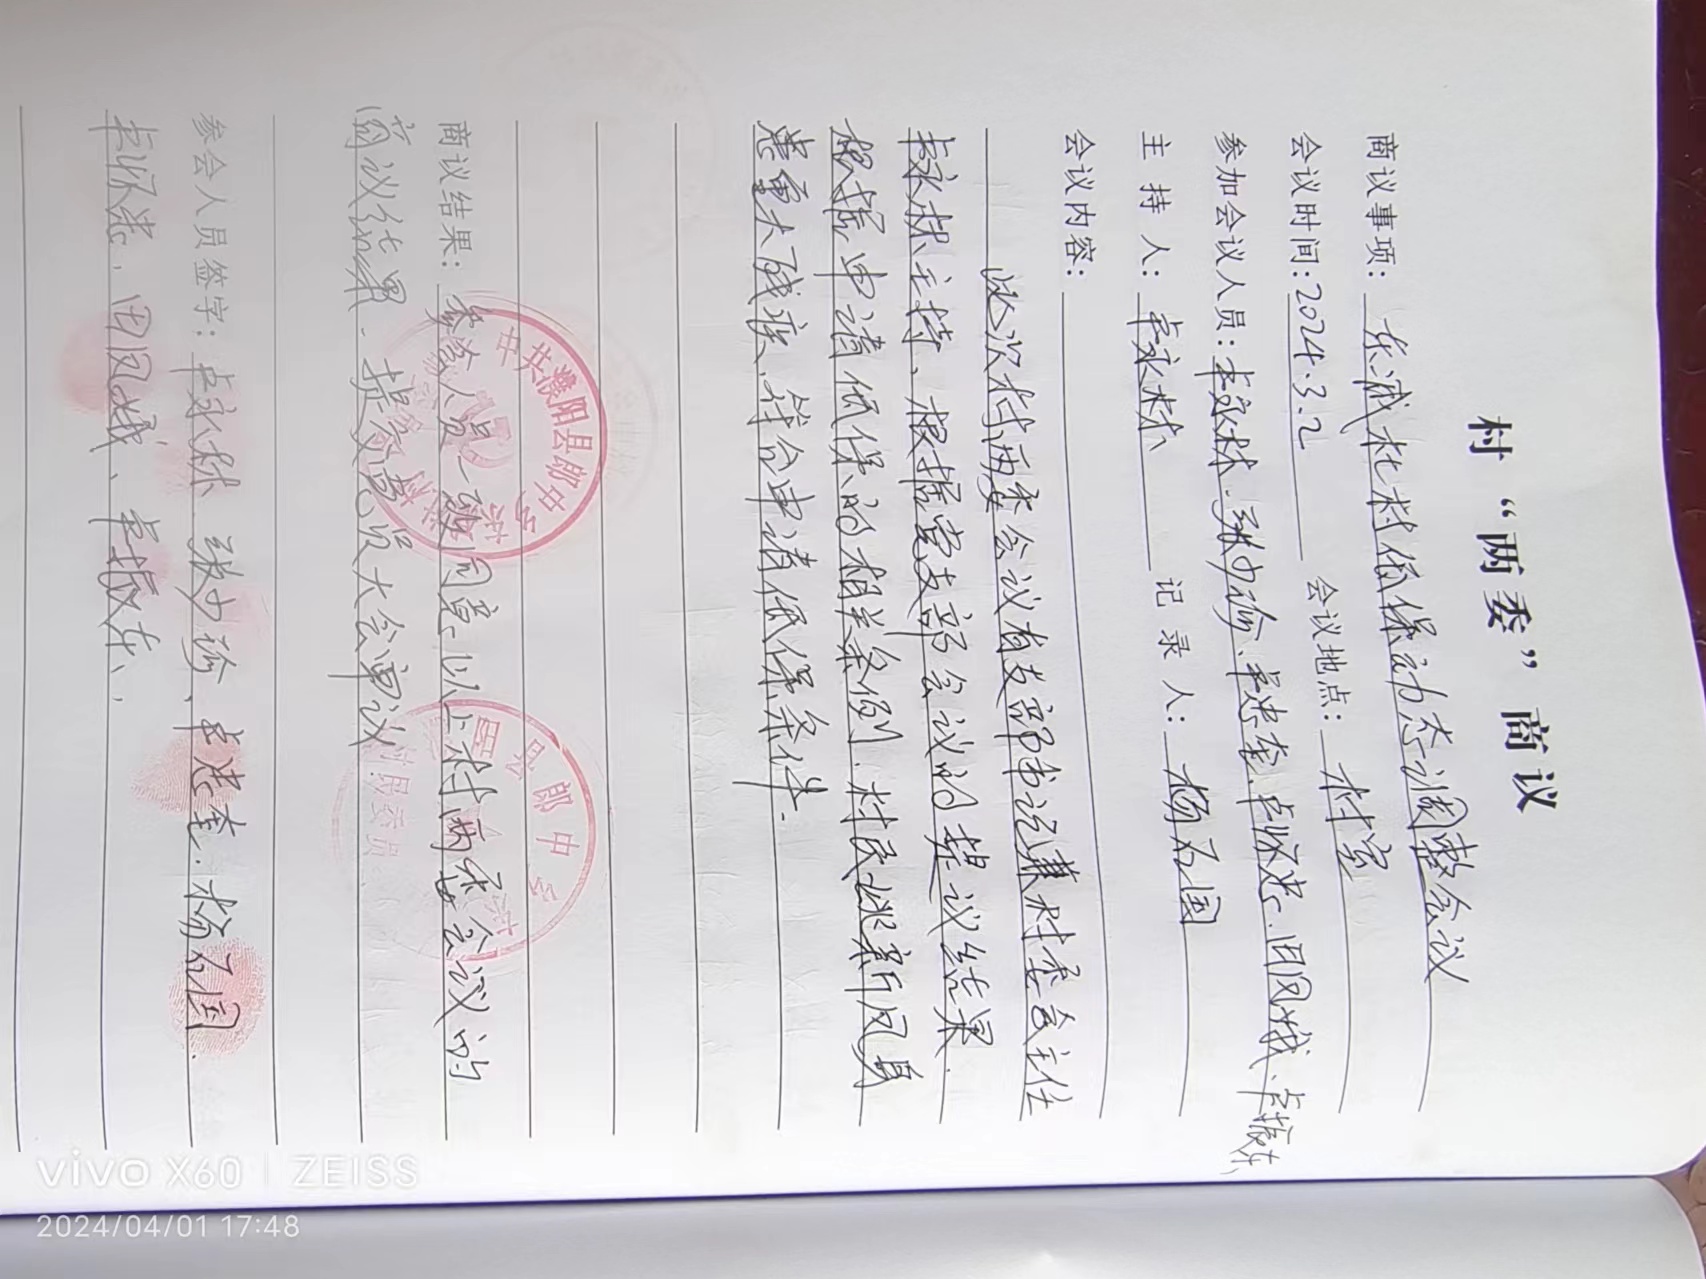 村“两委”商议
商议事项：东戚圠村低保动态调整会议
会议时间：2024.3.2 会议地点：村室
参加会议人员：卓永林、张少珍、卓忠奎、卓保忠、田凤娥、卓振东、
主持人：卓永林 记录人：杨石国
会议内容：
此次村两委会议有支部书记兼村委会主任
卓永林主持、根据党支部会议的提议结果.
根据申请低保的相关条例.村民姚新凤身
患重大残疾、符合申请低保条件.
商议结果：参会人员一致同意以上村两委会议的
商议结果.提交党员大会审议
中共濮阳县郎中乡
县郎中乡
村民委员
参会人员签字：卓永林 张少珍、卓忠奎.杨石国.
卓保忠、田凤娥、卓振东、
vivo X60 | ZEISS
2024/04/01 17:48